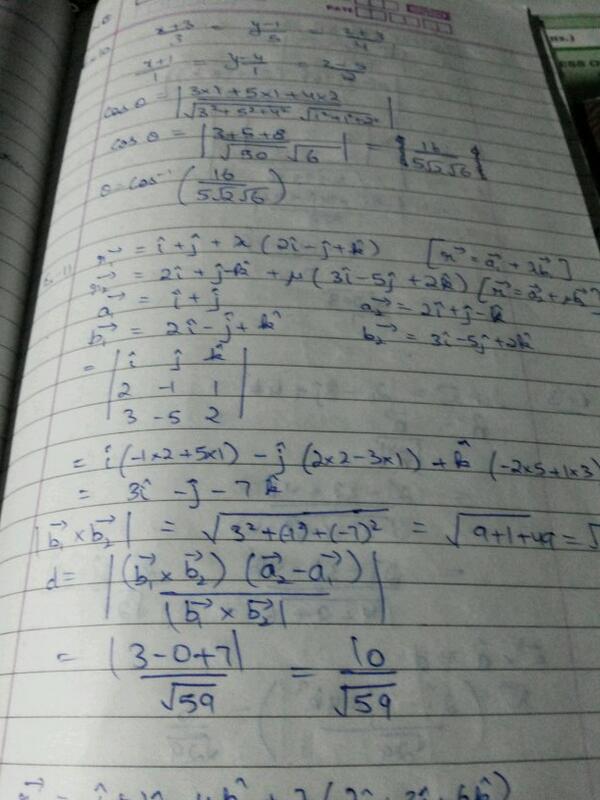 DATE
x+3/3 = y-1/5 = z+3/4
x+1/1 = y-4/1 = z-5/2
cos θ = |3×1+5×1+4×2 / √3²+5²+4² √1²+1²+2²|
cos θ = |3+5+8 / √50 √6| = |16 / 5√2√6|
θ = cos⁻¹ (16 / 5√2√6)
r₁→ = î+ĵ + λ (2î-ĵ+k̂) [r→ = a₁→ + λb₁→]
r₂→ = 2î+ĵ-k̂ + μ(3î-5ĵ+2k̂) [r→ = a₂→+μb₂→]
a₁→ = î+ĵ a₂→ = 2î+ĵ-k̂
b₁→ = 2î-ĵ+k̂ b₂→ = 3î-5ĵ+2k̂
= | î ĵ k̂ |
| 2 -1 1 |
| 3 -5 2 |
= î(-1×2+5×1) - ĵ (2×2-3×1) + k̂ (-2×5+1×3)
= 3î - ĵ - 7k̂
|b₁→ × b₂→| = √3²+(-1)²+(-7)² = √9+1+49 = 5
d = |(b₁→ × b₂→) (a₂→ - a₁→) / |b₁→ × b₂→||
= |3-0+7| / √59 = 10 / √59